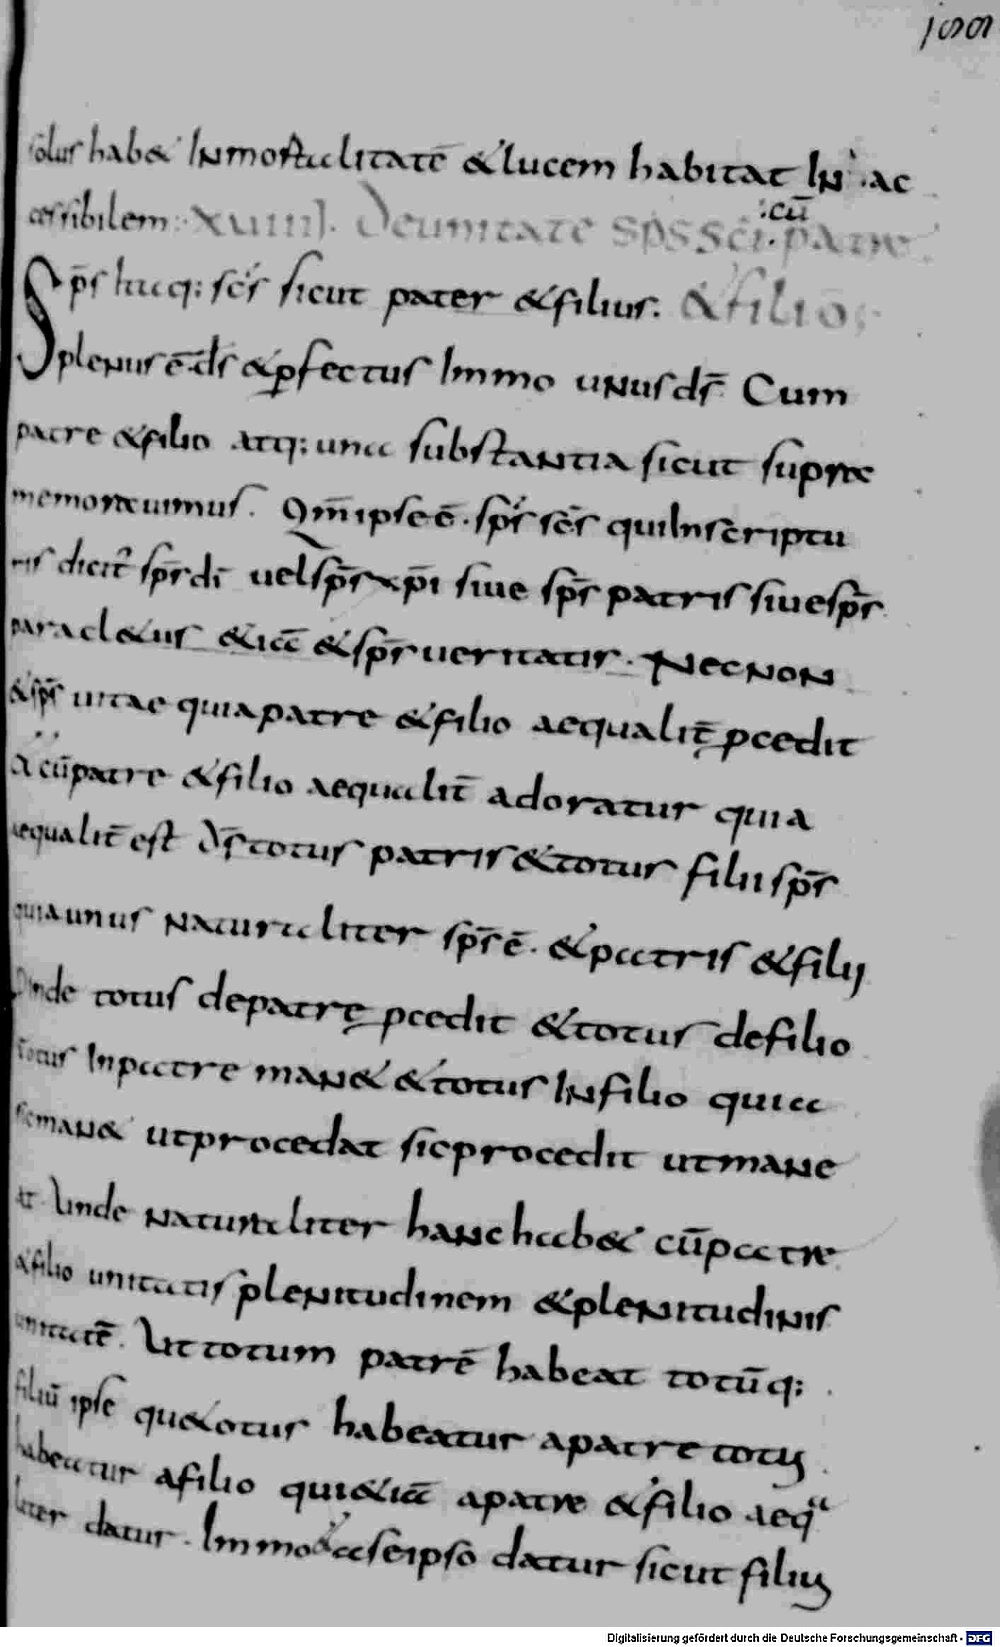 solus hab& Inmortalitatē & lucem habitat In ac
cessibilem: XVIIII. De unitate sp̄s sc̄i. cū patre
Sp̄s itaq; sc̄s sicut pater & filius. & filio;
plenus ē d̄s & ꝑfectus Immo unus ds̄ Cum
patre & filio atq; una substantia sicut supra
memoravimus. Qm̄ ipse ē. sp̄s sc̄s qui In scriptu
ris dicit̄ sp̄s dī uel sp̄s xp̄i siue sp̄s patris siue sp̄s
paracl&us &iā & sp̄s ueritatis. Necnon
& sp̄s uitae quia patre & filio aequalit̄ ꝓcedit
& cū patre & filio aequalit̄ adoratur quia
aequalit̄ est d̄s totus patris & totus filii sp̄s
quia unus naturaliter sp̄s ē. & patris & filij
Unde totus de patre ꝓcedit & totus de filio
totus In patre man& & totus In filio quia
sic man& ut procedat sic procedit ut mane
at. Unde naturaliter hanc hab& cū patre
& filio unitatis plenitudinem & plenitudinis
unitatē. Ut totum patrē habeat totūq;
filiū ipse qu& totus habeatur a patre totus
habeatur a filio qui &iā a patre & filio aequa
liter datur. Immo & a seipso datur sicut filius
Digitalisierung gefördert durch die Deutsche Forschungsgemeinschaft - DFG